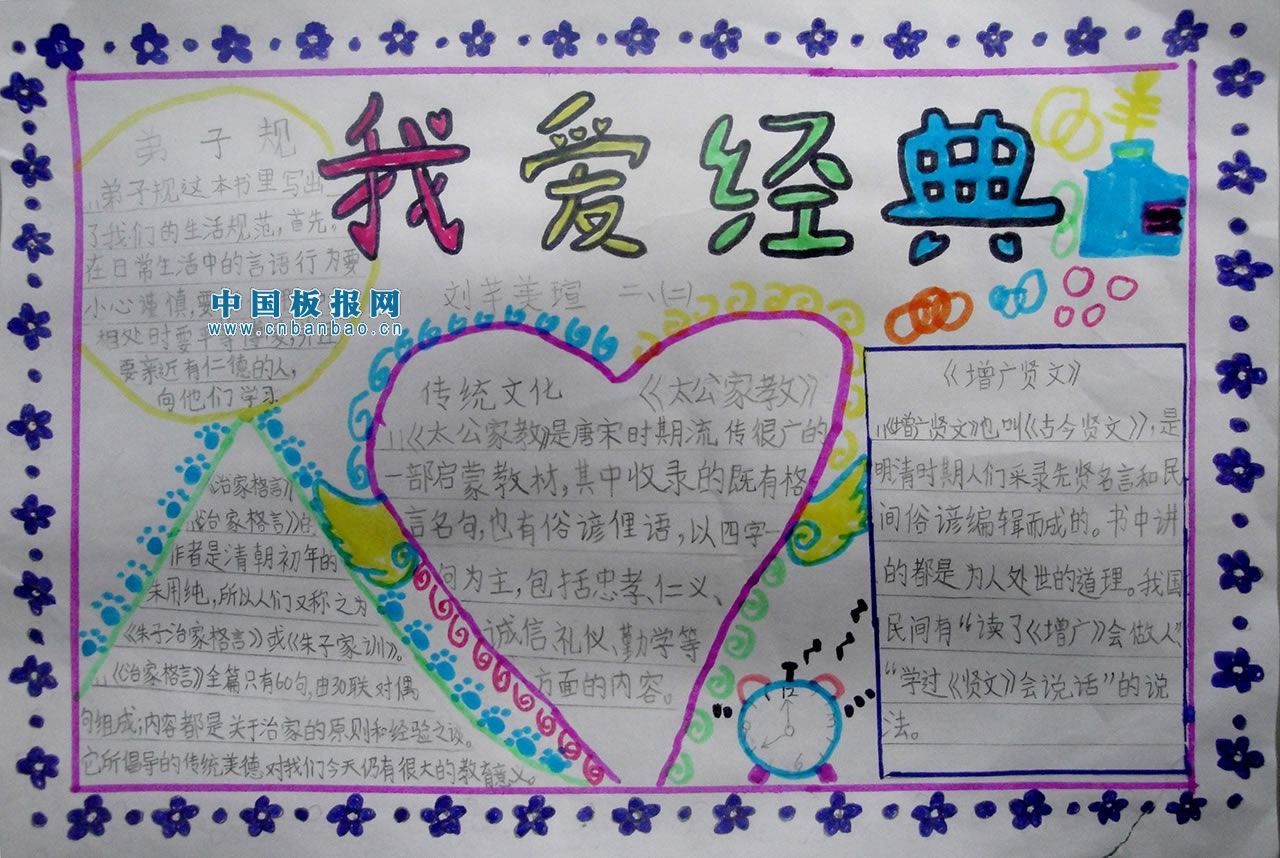 我爱经典
刘芊美瑄 二、(二)
弟子规
弟子规这本书里写出
了我们的生活规范，首先，
在日常生活中的言语行为要
小心谨慎，要
中国板报网
www.cnbanbao.cn
相处时要平等
要亲近有仁德的人，
向他们学习
《治家格言》
《治家格言》的
作者是清朝初年的
朱用纯，所以人们又称之为
《朱子治家格言》或《朱子家训》。
《治家格言》全篇只有60句，由30联对偶
句组成；内容都是关于治家的原则和经验之谈。
它所倡导的传统美德对我们今天仍有很大的教育意义。
传统文化 《太公家教》
《太公家教》是唐宋时期流传很广的
一部启蒙教材，其中收录的既有格
言名句，也有俗谚俚语，以四字一
句为主，包括忠孝、仁义、
诚信、礼仪、勤学等
方面的内容。
《增广贤文》
《增广贤文》也叫《古今贤文》，是
明清时期人们采录先贤名言和民
间俗谚编辑而成的。书中讲
的都是为人处世的道理。我国
民间有“读了《增广》会做人”
“学过《贤文》会说话”的说
法。
12
3
6